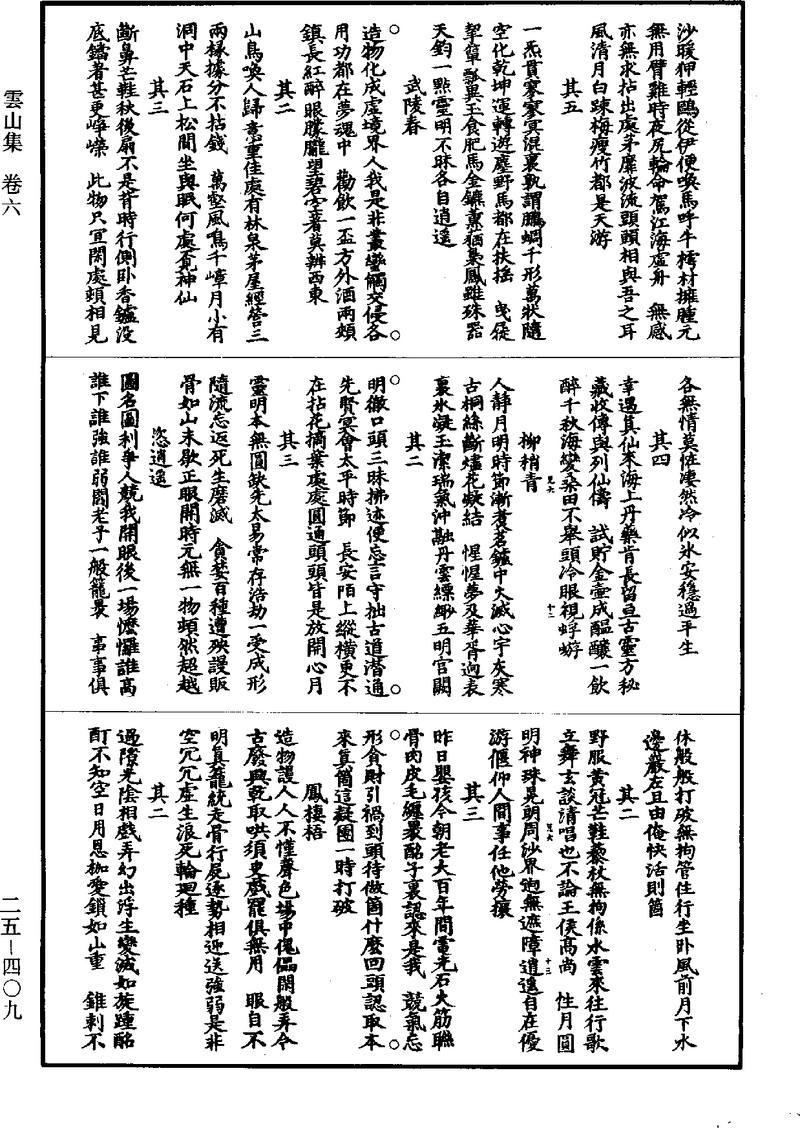 雲山集　卷六
二五—四〇九
沙暖狎輕鷗從伊便喚馬呼牛樗材擁腫元
無用臂雞時夜尻輪命駕江海虛舟　無感
亦無求拈出處茅靡波流頭頭相與吾之耳
風清月白踈梅瘦竹都是天游
其五
一炁貫寥寥冥混裏孰謂鵬蜩千形萬狀隨
空化乾坤運轉遊塵野馬都在扶搖　曳屣
挈簞瓢異玉食肥馬金鑣薰猶梟鳳雖殊器
天鈞一點靈明不昧各自逍遙
武陵春
造物化成虛境界人我是非叢蠻觸交侵各
用功都在夢魂中　勸飲一盃方外酒兩頰
鎮長紅醉眼朦朧望碧空著莫辨西東
其二
山鳥喚人歸意重佳處有林泉茅屋經營三
兩椽據分不拈錢　萬壑風鳴千嶂月小有
洞中天石上松間坐與眠何處覓神仙
其三
斷鼻芒鞋秋後扇不是昔時行側卧香鑪没
底鐺者甚更崢嶸　此物只宜閑處頓相見
各無情莫恠凄然冷似氷安穩過平生
其四
幸遇真仙來海上丹藥肯長留亘古靈方秘
藏收傳與列仙儔　試貯金壷成醞釀一飲
醉千秋海變桑田不舉頭冷眼視蜉蝣
柳梢青
人靜月明時節漸煮茗鑪中火滅心宇灰寒
古桐絲斷燼花凝結　惺惺夢及華胥迥表
裏氷凝玉潔瑞氣沖融丹雲縹緲五明宫闕
其二
明徹口頭三昧拂迹便忘言守拙古道潜通
先賢冥會太平時節　長安陌上縱横更不
在拈花摘葉處處圓通頭頭皆是放開心月
其三
靈明本無圓缺先太易常存浩劫一受成形
隨流忘返死生磨滅　貪婪百種遭殃謾販
骨如山未歇正眼開時元無一物頓然超越
恣逍遥
圖名圖利爭人競我開眼後一場懡㦬誰高
誰下誰強誰弱閻老子一般籠裹　事事俱
休般般打破無拘管住行坐卧風前月下水
邊巖左且由俺快活則箇
其二
野服黄冠芒鞋藜杖無拘係水雲來往行歌
立舞玄談清唱也不論王侯高尚　性月圓
明神珠晃朗周沙界迥無遮障逍遥自在優
游偃仰人間事任他勞攘
其三
昨日嬰孩今朝老大百年間電光石火筋聯
骨肉皮毛纏裹酩子裏認來是我　競氣忘
形貪財引禍到頭待做箇什麽回頭認取本
來真箇這凝團一時打破
鳳棲梧
造物謾人人不懂聲色塲中傀儡閑般弄今
古廢興乾取哄須臾戲罷俱無用　眼自不
明真籠統走骨行屍逐勢相迎送強弱是非
空冗冗虛生浪死輪迴種
其二
過隙光陰相戲弄幻出浮生變滅如旋踵酩
酊不知空日用恩枷愛鎖如山重　錐刺不